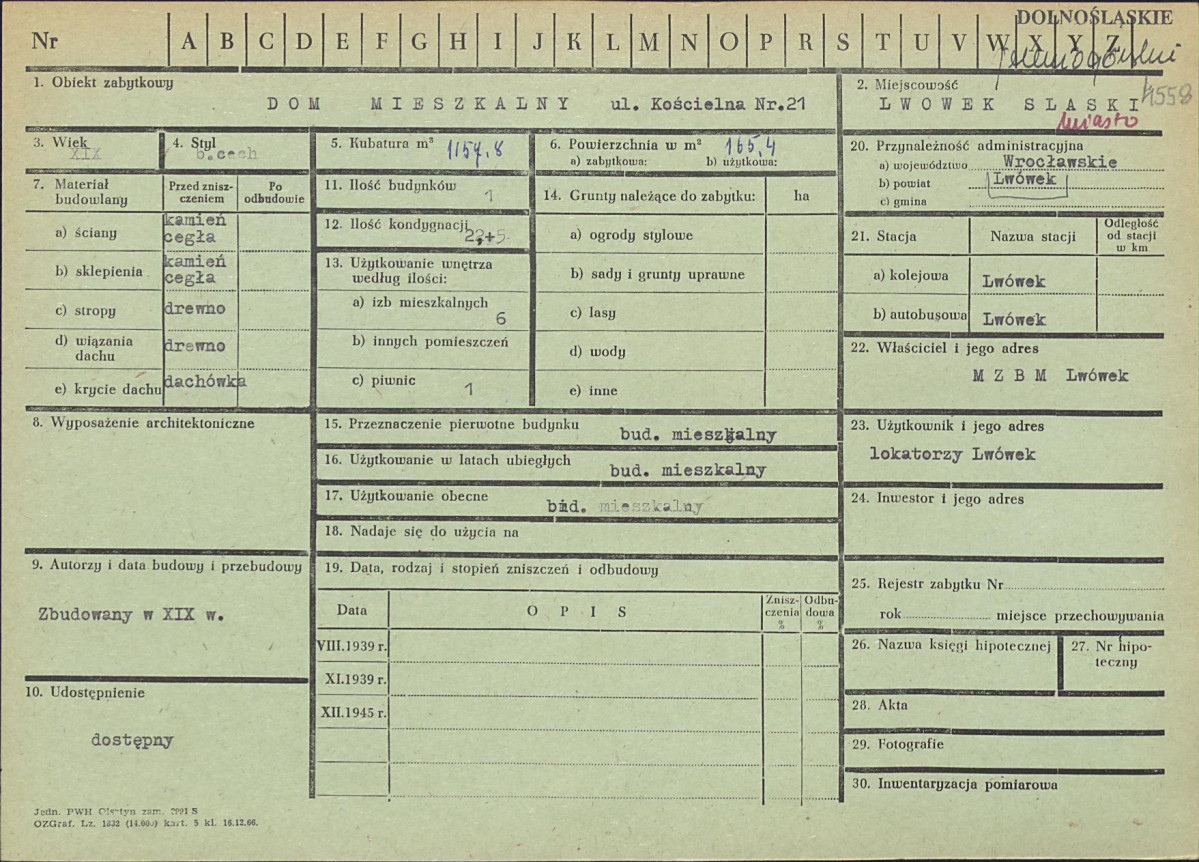 DOLNOŚLĄSKIE
Nr A B C D E F G H I J K L M N O P R S T U V W X Y Z
1. Obiekt zabytkowy
DOM MIESZKALNY ul. Kościelna Nr.21
2. Miejscowość
LWOWEK SLASKI
4558
Miasto
3. Wiek
XIX
4. Styl
b.cech
5. Kubatura m³ 1157,8
6. Powierzchnia w m² 165,4
a) zabytkowa: b) użytkowa:
20. Przynależność administracyjna
a) województwo Wrocławskie
b) powiat Lwówek
c) gmina
7. Materiał budowlany
Przed znisz-
czeniem
Po
odbudowie
a) ściany kamień
cegła
b) sklepienia kamień
cegła
c) stropy drewno
d) wiązania
dachu drewno
e) krycie dachu dachówka
11. Ilość budynków
1
12. Ilość kondygnacji
13. Użytkowanie wnętrza
według ilości:
a) izb mieszkalnych
6
b) innych pomieszczeń
c) piwnic 1
14. Grunty należące do zabytku: ha
a) ogrody stylowe
b) sady i grunty uprawne
c) lasy
d) wody
e) inne
21. Stacja Nazwa stacji
Odległość
od stacji
w km
a) kolejowa Lwówek
b) autobusowa Lwówek
22. Właściciel i jego adres
M Z B M Lwówek
8. Wyposażenie architektoniczne
15. Przeznaczenie pierwotne budynku
bud. mieszkalny
16. Użytkowanie w latach ubiegłych
bud. mieszkalny
17. Użytkowanie obecne
bud. mieszkalny
18. Nadaje się do użycia na
23. Użytkownik i jego adres
lokatorzy Lwówek
24. Inwestor i jego adres
9. Autorzy i data budowy i przebudowy
Zbudowany w XIX w.
19. Data, rodzaj i stopień zniszczeń i odbudowy
Data OPIS
Znisz-
czenia
%
Odbu-
dowa
%
VIII.1939 r.
XI.1939 r.
XII.1945 r.
25. Rejestr zabytku Nr
rok miejsce przechowywania
26. Nazwa księgi hipotecznej
27. Nr hipo-
teczny
10. Udostępnienie
dostępny
28. Akta
29. Fotografie
30. Inwentaryzacja pomiarowa
Jedn. PWH Olsztyn zam. 2991 S
OZGraf. Lz. 1832 (14.000) kart. 5 kl. 16.12.66.